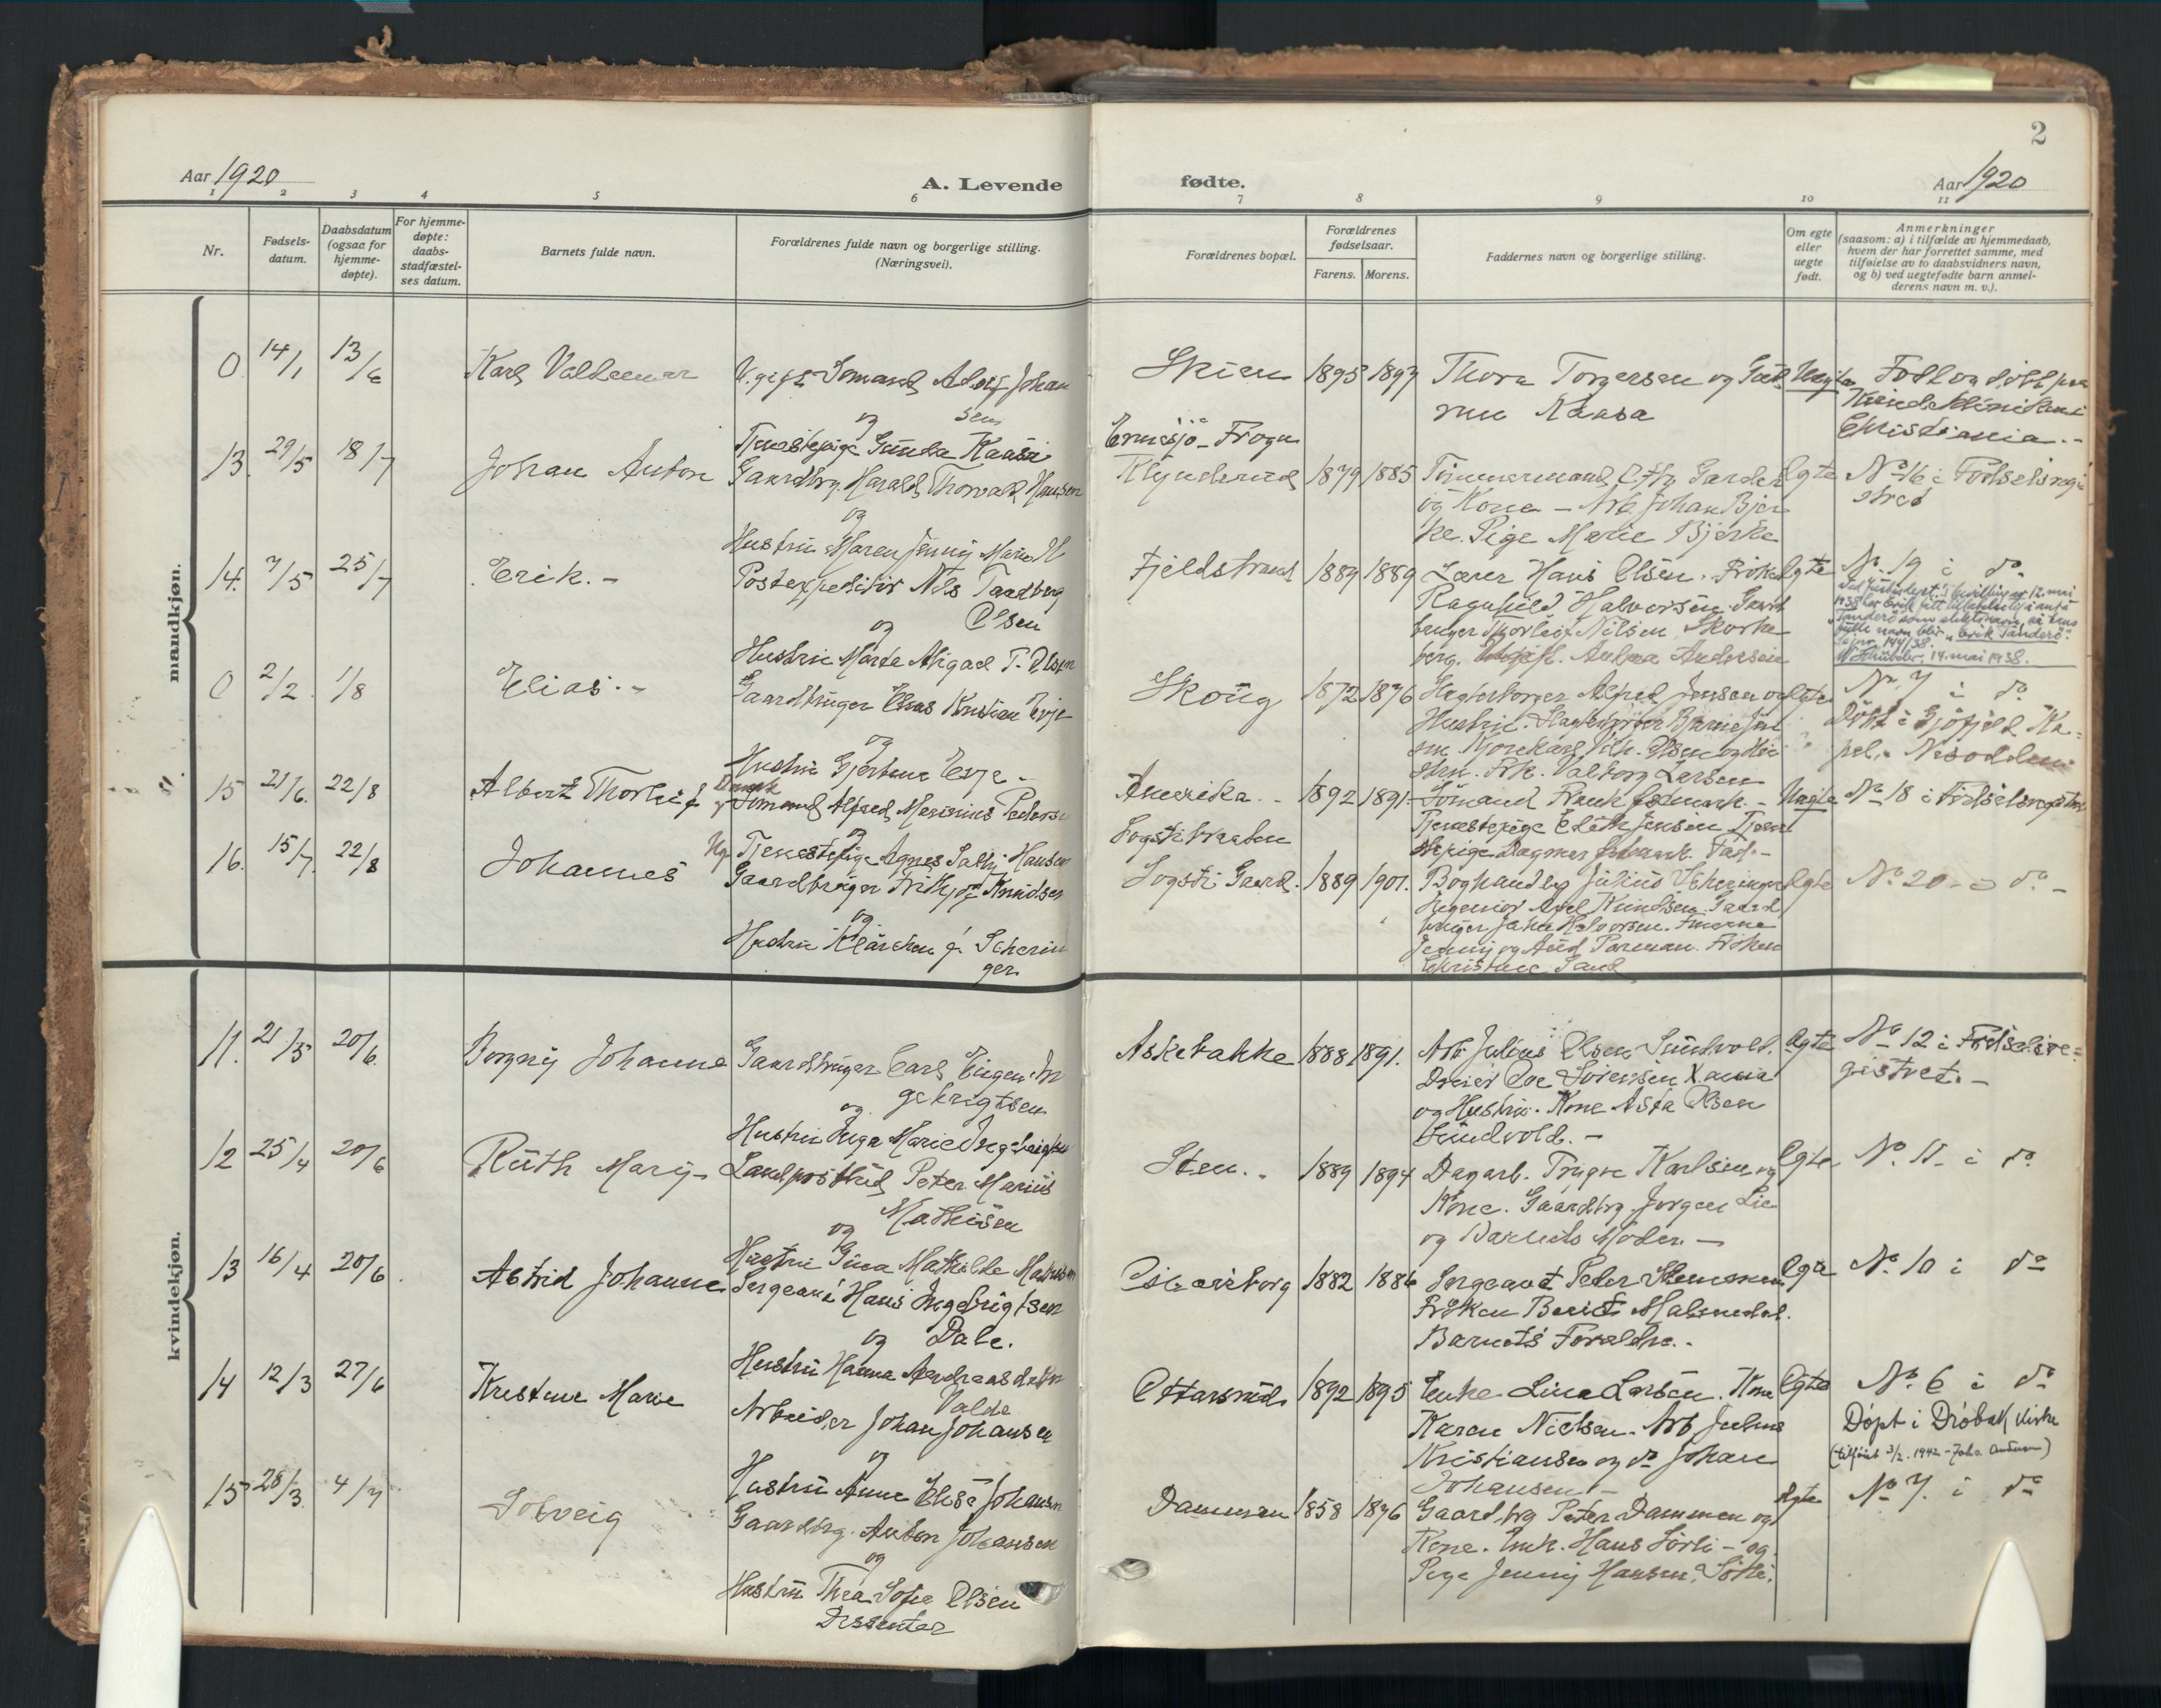 2
Aar 1920
A. Levende
fødte.
Aar 1920
1 2 3 4 5 6 7 8 9 10 11
Nr.
Fødsels-
datum.
Daabsdatum
(ogsaa for
hjemme-
døpte).
For hjemme-
døpte:
daabs-
stadfæstel-
ses datum.
Barnets fulde navn.
Forældrenes fulde navn og borgerlige stilling.
(Næringsvei).
Forældrenes bopæl.
Forældrenes
fødselsaar.
Farens. Morens.
Faddernes navn og borgerlige stilling.
Om egte
eller
uegte
født.
Anmerkninger
(saasom: a) i tilfælde av hjemmedaab,
hvem der har forrettet samme, med
tilføielse av to daabsvidners navn,
og b) ved uegtefødte barn anmel-
derens navn m. v.).
mandkjøn.
0 14/1 13/6 Karl Valdemar
Ugift Sömand Adolf Johan
sen
og
Tjenestepige Gunda Kaasa
Skien 1895 1897
Thora Torgersen og
Kaasa
Uegte
Födt og döbt paa
Kvindeklinikken i
Christiania.-
13. 29/5 18/7 Johan Anton
Gaardbrg. Harald Thorvald Hansen
og
Hustru Maren Jenny Marie H
Frogn
Klynderud 1879 1885
Tömmermand Garder
og Kone - Arb. Johan Bjer
ke. Pige Marie Bjerke
Egte
No 16 i Födselsregi
stret
14. 7/5 25/7 Erik.-
Postexpeditör Nils Taadberg
Olsen
og
Hustru Marta Abigael T. Olsen
Fjeldstrand 1889 1889
Lærer Hans Olsen. Fröken
Ragnhild Halvorsen. Gaard
bruger Thorleif Nilsen Skorke
berg. Anna Andersen
Egte
No 19 i do
Ved Justisdept.s bevilling av 12. mai
1938 har Erik fått tillatelse til å anta
"Tanderö" som slektsnavn, så hans
fulle navn blir "Erik Tanderö".
Jnr. 144/38.
19. mai 1938.
0 2/2 1/8 Elias.-
Gaardbruger Elias Kristian Evje
og
Hustru Gjertine Evje -
Skoug 1872 1876
Slagterborger Alfred Jensen og
Hustru. Bjarne Jen
sen Olsen og Hu
stru. Frk. Valborg Larsen
Egte
No 7 i do
Döbt i Gjöfjeld Ka=
pel.- Nesodden
15 21/6. 22/8 Albert Thorleif
Sömand Alfred Pedersen
og
Ug. Tjenestepige Agnes Hansen
Amerika.- 1892 1891.
Sogsti
Sömand
Tjenestepige Edith Jensen Tjene
stepige Dagmar
Uegte
No 18 i Födselsregistret
16. 15/7. 22/8 Johannes
Gaardbruger Frithjof Knudsen
og
Hustru Klärchen f. Scherin
ger
Sogsti Gaard. 1889 1901.
Boghandlg. Julius Scheringer
Ingeniör Axel Knudsen. Gaard
bruger Johan Halvorsen. Fruerne
Jenny og Aud Parmann. Fröken
Christine Sand
Egte
No 20 - i do -
kvindekjøn.
11. 21/5 20/6. Borgny Johanne
Gaardbruger Carl Eugen In
gebrigtsen
og
Hustru Inga Marie Ingebrigtsen
Askebakke 1888 1891.
Arb. Julius Olsen Sundvold.
Dreier Ove Sörensen X.ania
og Hustru. Kone Asta Olsen
Sundvold.-
Egte
No 12 i Födselsre=
gistret.-
12 25/4 20/6 Ruth Mary
Landpostbud Peter Marius
Mathisen
og
Hustru Gina Mathilde Mathisen
Sten.- 1889 1894
Dagarb. Trygve Karlsen og
Kone. Gaardbrg. Jörgen Lie
og Barnets Moder.-
Egte
No 11 - i do
13 16/4 20/6. Astrid Johanne
Sergeant Hans Ingebrigtsen
og Dale.
Hustru Hanna Andreasdatter
Valde
Oscarsborg 1882 1886
Sergeant Peder Stemmen
Fröken Berit Malmedal.
Barnets Forældre.-
Egte
No 10 i do
14 12/3 27/6 Kristine Marie
Arbeider Johan Johansen
og
Hustru Anne Elise Johansen
Ottarsrud 1892 1895
Enke Lina Larsen. Kone
Karen Nielsen. Arb Julius
Kristiansen og do Johan
Johansen -
Egte
No 6 i do
Döpt i Dröbak kirke
(tilföiet 3/2. 1942 - Johs. )
15 28/3. 4/7 Solveig
Gaardbrg. Anton Johansen
og
Hustru Thea Sofie Olsen
Dissenter
Dammen 1858 1876
Gaardbrg Peter Dammen og
Kone. Enk. Hans Sörli - og
Pige Jenny Hansen, Sörli.
Egte
No 7. i do